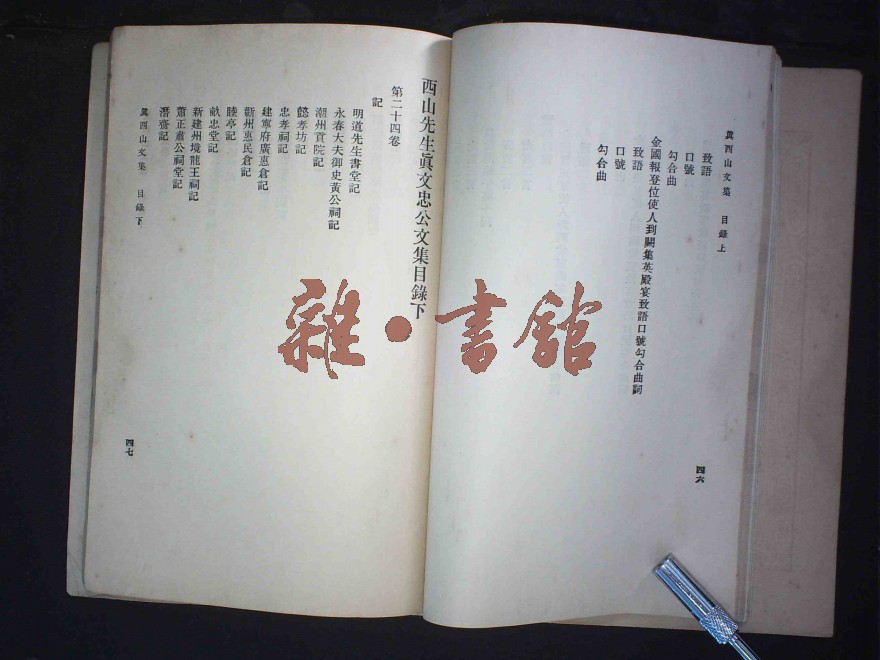 眞西山文集　目錄上
致語
口號
勾合曲
金國報登位使人到闕集英殿宴致語口號勾合曲詞
致語
口號
勾合曲
四六
西山先生眞文忠公文集目錄下
第二十四卷
記
明道先生書堂記
永春大夫御史黃公祠記
潮州貢院記
懿孝坊記
忠孝祠記
建寧府廣惠倉記
勸州惠民倉記
睦亭記
畝忠堂記
新建州境龍王祠記
蕭正肅公祠堂記
潛齋記
眞西山文集　目錄下
四七
雜·書館